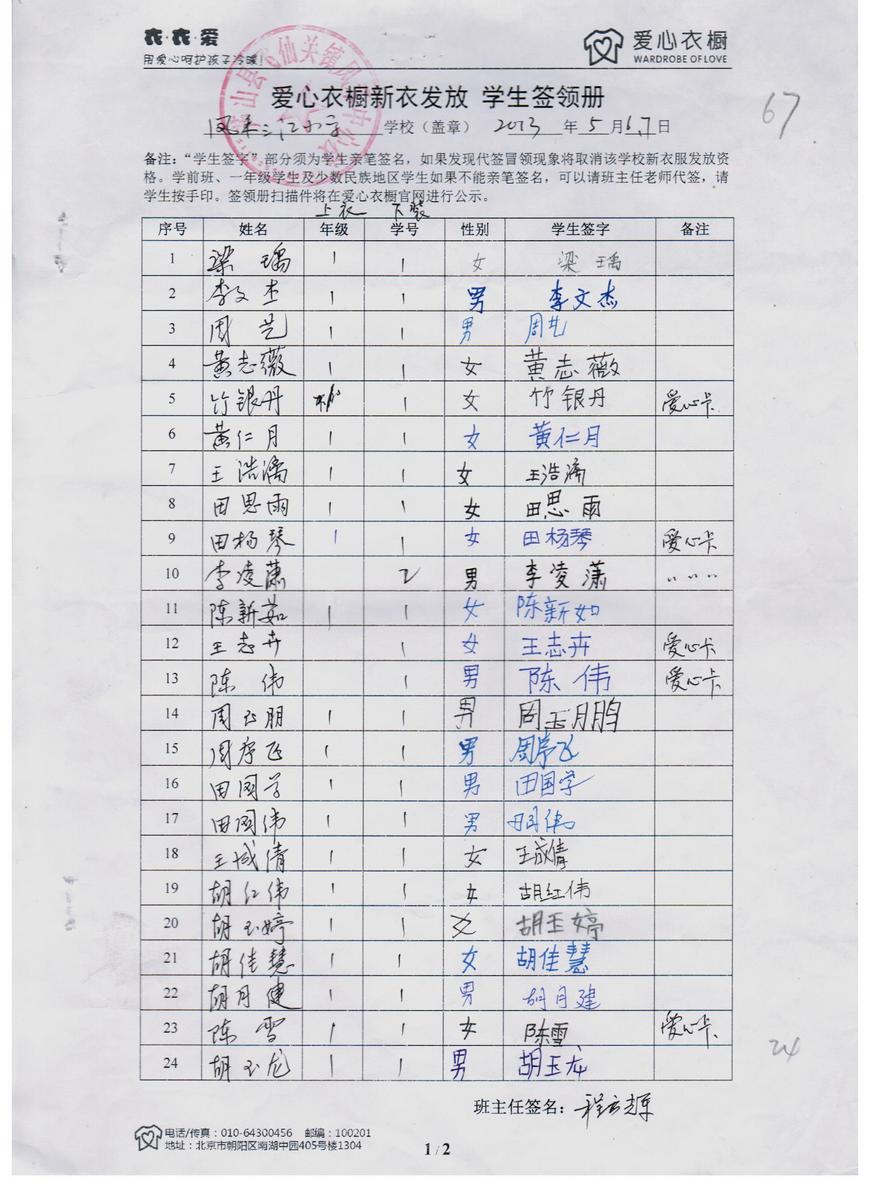 衣·衣·爱
用爱心呵护孩子冷暖!
爱心衣橱
WARDROBE OF LOVE
爱心衣橱新衣发放 学生签领册
67
学校（盖章） 2013 年 5 月 6.7 日
备注：“学生签字”部分须为学生亲笔签名，如果发现代签冒领现象将取消该学校新衣服发放资
格。学前班、一年级学生及少数民族地区学生如果不能亲笔签名，可以请班主任老师代签，请
学生按手印。签领册扫描件将在爱心衣橱官网进行公示。
上衣 下装
序号 姓名 年级 学号 性别 学生签字 备注
1 梁瑀 1 1 女 梁瑀
2 李文杰 1 1 男 李文杰
3 周艺 1 1 男 周艺
4 黄志薇 1 1 女 黄志薇
5 竹银丹 1 女 竹银丹 爱心卡
6 黄仁月 1 1 女 黄仁月
7 王浩漪 1 1 女 王浩漪
8 田思雨 1 1 女 田思雨
9 田杨琴 1 1 女 田杨琴 爱心卡
10 李凌潇 2 男 李凌潇 〃 〃 〃
11 陈新茹 1 1 女 陈新如
12 王志卉 1 女 王志卉 爱心卡
13 陈伟 1 男 陈伟 爱心卡
14 周玉朋 1 1 男 周玉月鹏
15 周序飞 1 1 男 周序飞
16 田国学 1 1 男 田国学
17 田国伟 1 1 男
18 王城倩 1 1 女 王成倩
19 胡红伟 1 1 女 胡红伟
20 胡玉婷 1 1 女 胡玉婷
21 胡佳慧 1 1 女 胡佳慧
22 胡月健 1 1 男 胡月建
23 陈雪 1 1 女 陈雪 爱心卡
24 胡玉龙 1 1 男 胡玉龙
24
班主任签名：
电话/传真：010-64300456 邮编：100201
地址：北京市朝阳区南湖中园405号楼1304
1 / 2